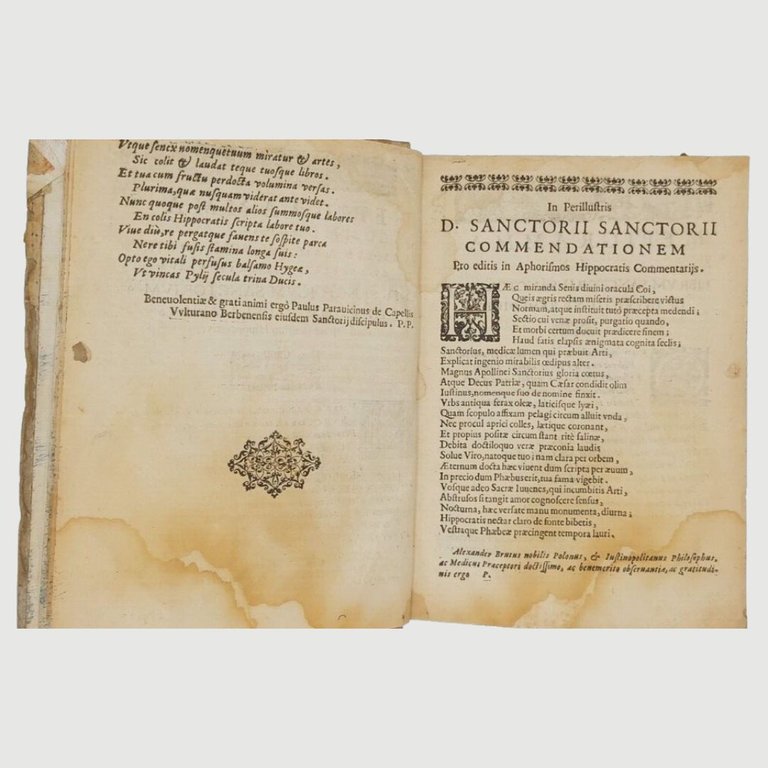 Vtque senex nomenquetuum miratur & artes,
Sic colit & laudat teque tuosque libros.
Et tua cum fructu perdocta volumina versas.
Plurima, quæ nusquam viderat ante videt.
Nunc quoque post multos alios summosque labores
En colis Hippocratis scripta labore tuo.
Viue diù, re pergatque fauens te sospite parca
Nere tibi fusis stamina longa suis:
Opto ego vitali perfusus balsamo Hygeæ,
Vt vincas Pylij secula trina Ducis.
Beneuolentiæ & grati animi ergò Paulus Parauicinus de Capellis
Vvlturano Berbenensis eiusdem Sanctorij discipulus. P. P.
In Perillustris
D. SANCTORII SANCTORII
COMMENDATIONEM
Pro editis in Aphorismos Hippocratis Commentarijs.
HÆc miranda Senis diuini oracula Coi,
Queis ægris rectam miseris præscribere victus
Normam, atque instituit tutò præcepta medendi;
Sectio cui venæ prosit, purgatio quando,
Et morbi certum ducuit prædicere finem;
Haud satis elapsis ænigmata cognita seclis;
Sanctorius, medicæ lumen qui præbuit Arti,
Explicat ingenio mirabilis œdipus alter.
Magnus Apollinei Sanctorius gloria cœtus,
Atque Decus Patriæ, quam Cæsar condidit olim
Iustinus, nomenque suo de nomine finxit.
Vrbs antiqua ferax oleæ, laticisque lyæi,
Quam scopulo affixam pelagi circum alluit vnda,
Nec procul aprici colles, lætique coronant,
Et propius positæ circum stant ritè salinæ,
Debita doctiloquo veræ præconia laudis
Solue Viro, natoque tuo; nam clara per orbem,
Æternum docta hæc viuent dum scripta per æuum,
In precio dum Phæbus erit, tua fama vigebit.
Vosque adeo Sacræ Iuuenes, qui incumbitis Arti,
Abstrusos si tangit amor cognoscere sensus,
Nocturna, hæc versate manu monumenta, diurna;
Hippocratis nectar claro de fonte bibetis,
Vestraque Phæbeæ præcingent tempora lauri.
Alexander Brutus nobilis Polonus, & Iustinopolitanus Philosophus,
ac Medicus Præceptori doctissimo, ac benemerito obseruantiæ, ac gratitudi-
nis ergo P.